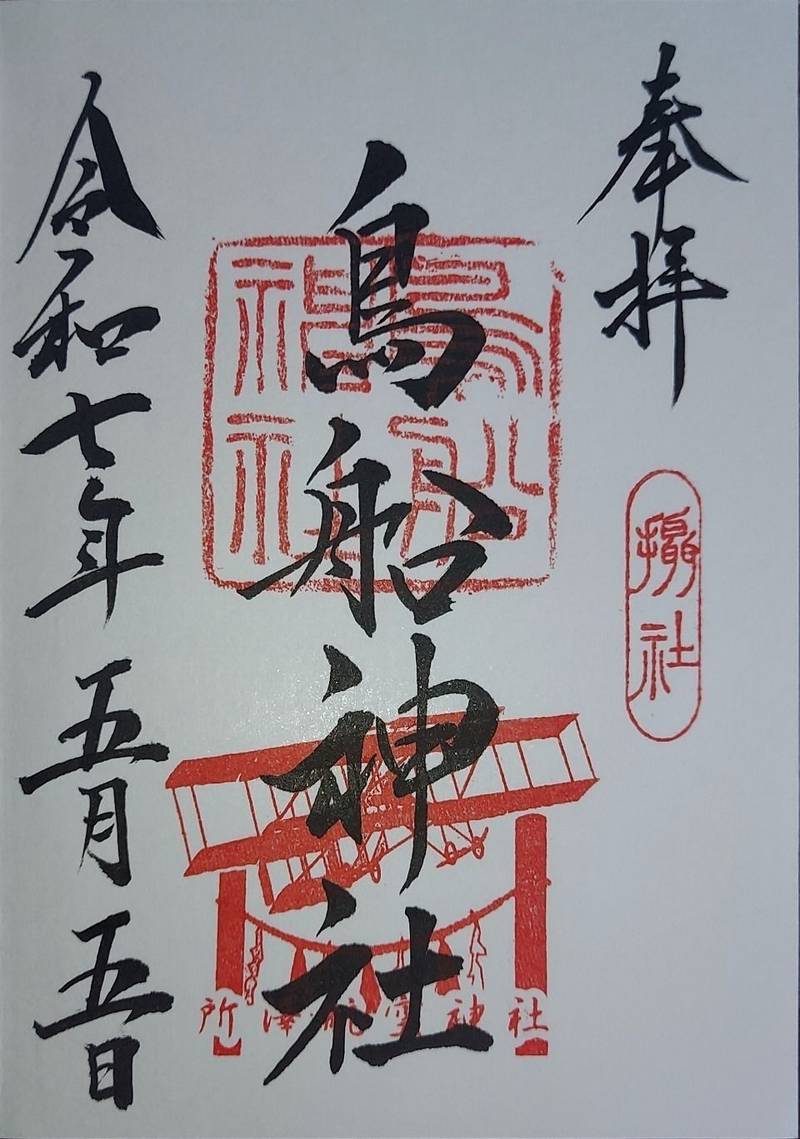 奉拝
攝社
鳥船神社
鳥船神社
所澤航空神社
令和七年五月五日